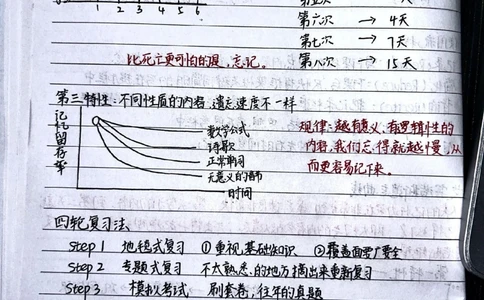 1 2 3 4 5 6
第六次 → 4天
第七次 → 7天
比死亡更可怕的是,忘记。 第八次 → 15天
第三特性:不同性质的内容,遗忘速度不一样
记忆留存率
数学公式
诗歌
正常单词
无意义的音节
时间
规律:越有意义,有逻辑性的
内容,我们忘得就越慢,从
而更容易记下来。
四轮复习法
Step 1 地毯式复习 ①重视基础知识 ②覆盖面要广要全
Step 2 专题式复习 不太熟悉的地方摘出来重新复习
Step 3 模拟考试 刷套卷,往年的真题